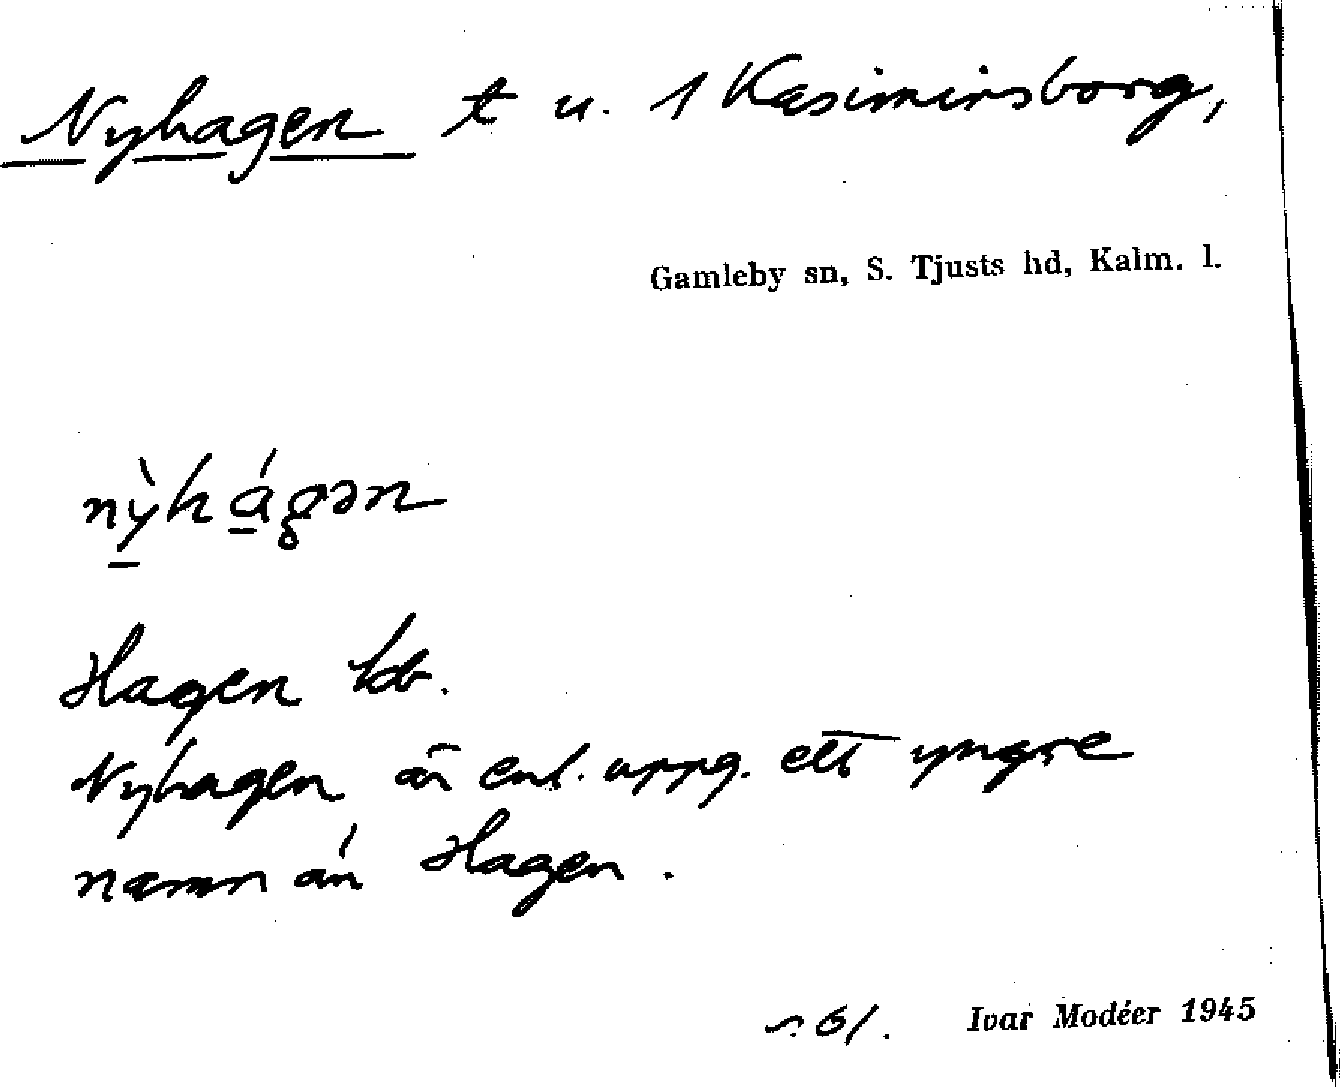 Nyhagen t u. 1 Kasimirsborg,
Gamleby sn, S. Tjusts hd, Kalm. l.
nỳhágən
Hagen kb.
Nyhagen är enl. uppg. ett yngre
namn än Hagen.
s. 61. Ivar Modéer 1945